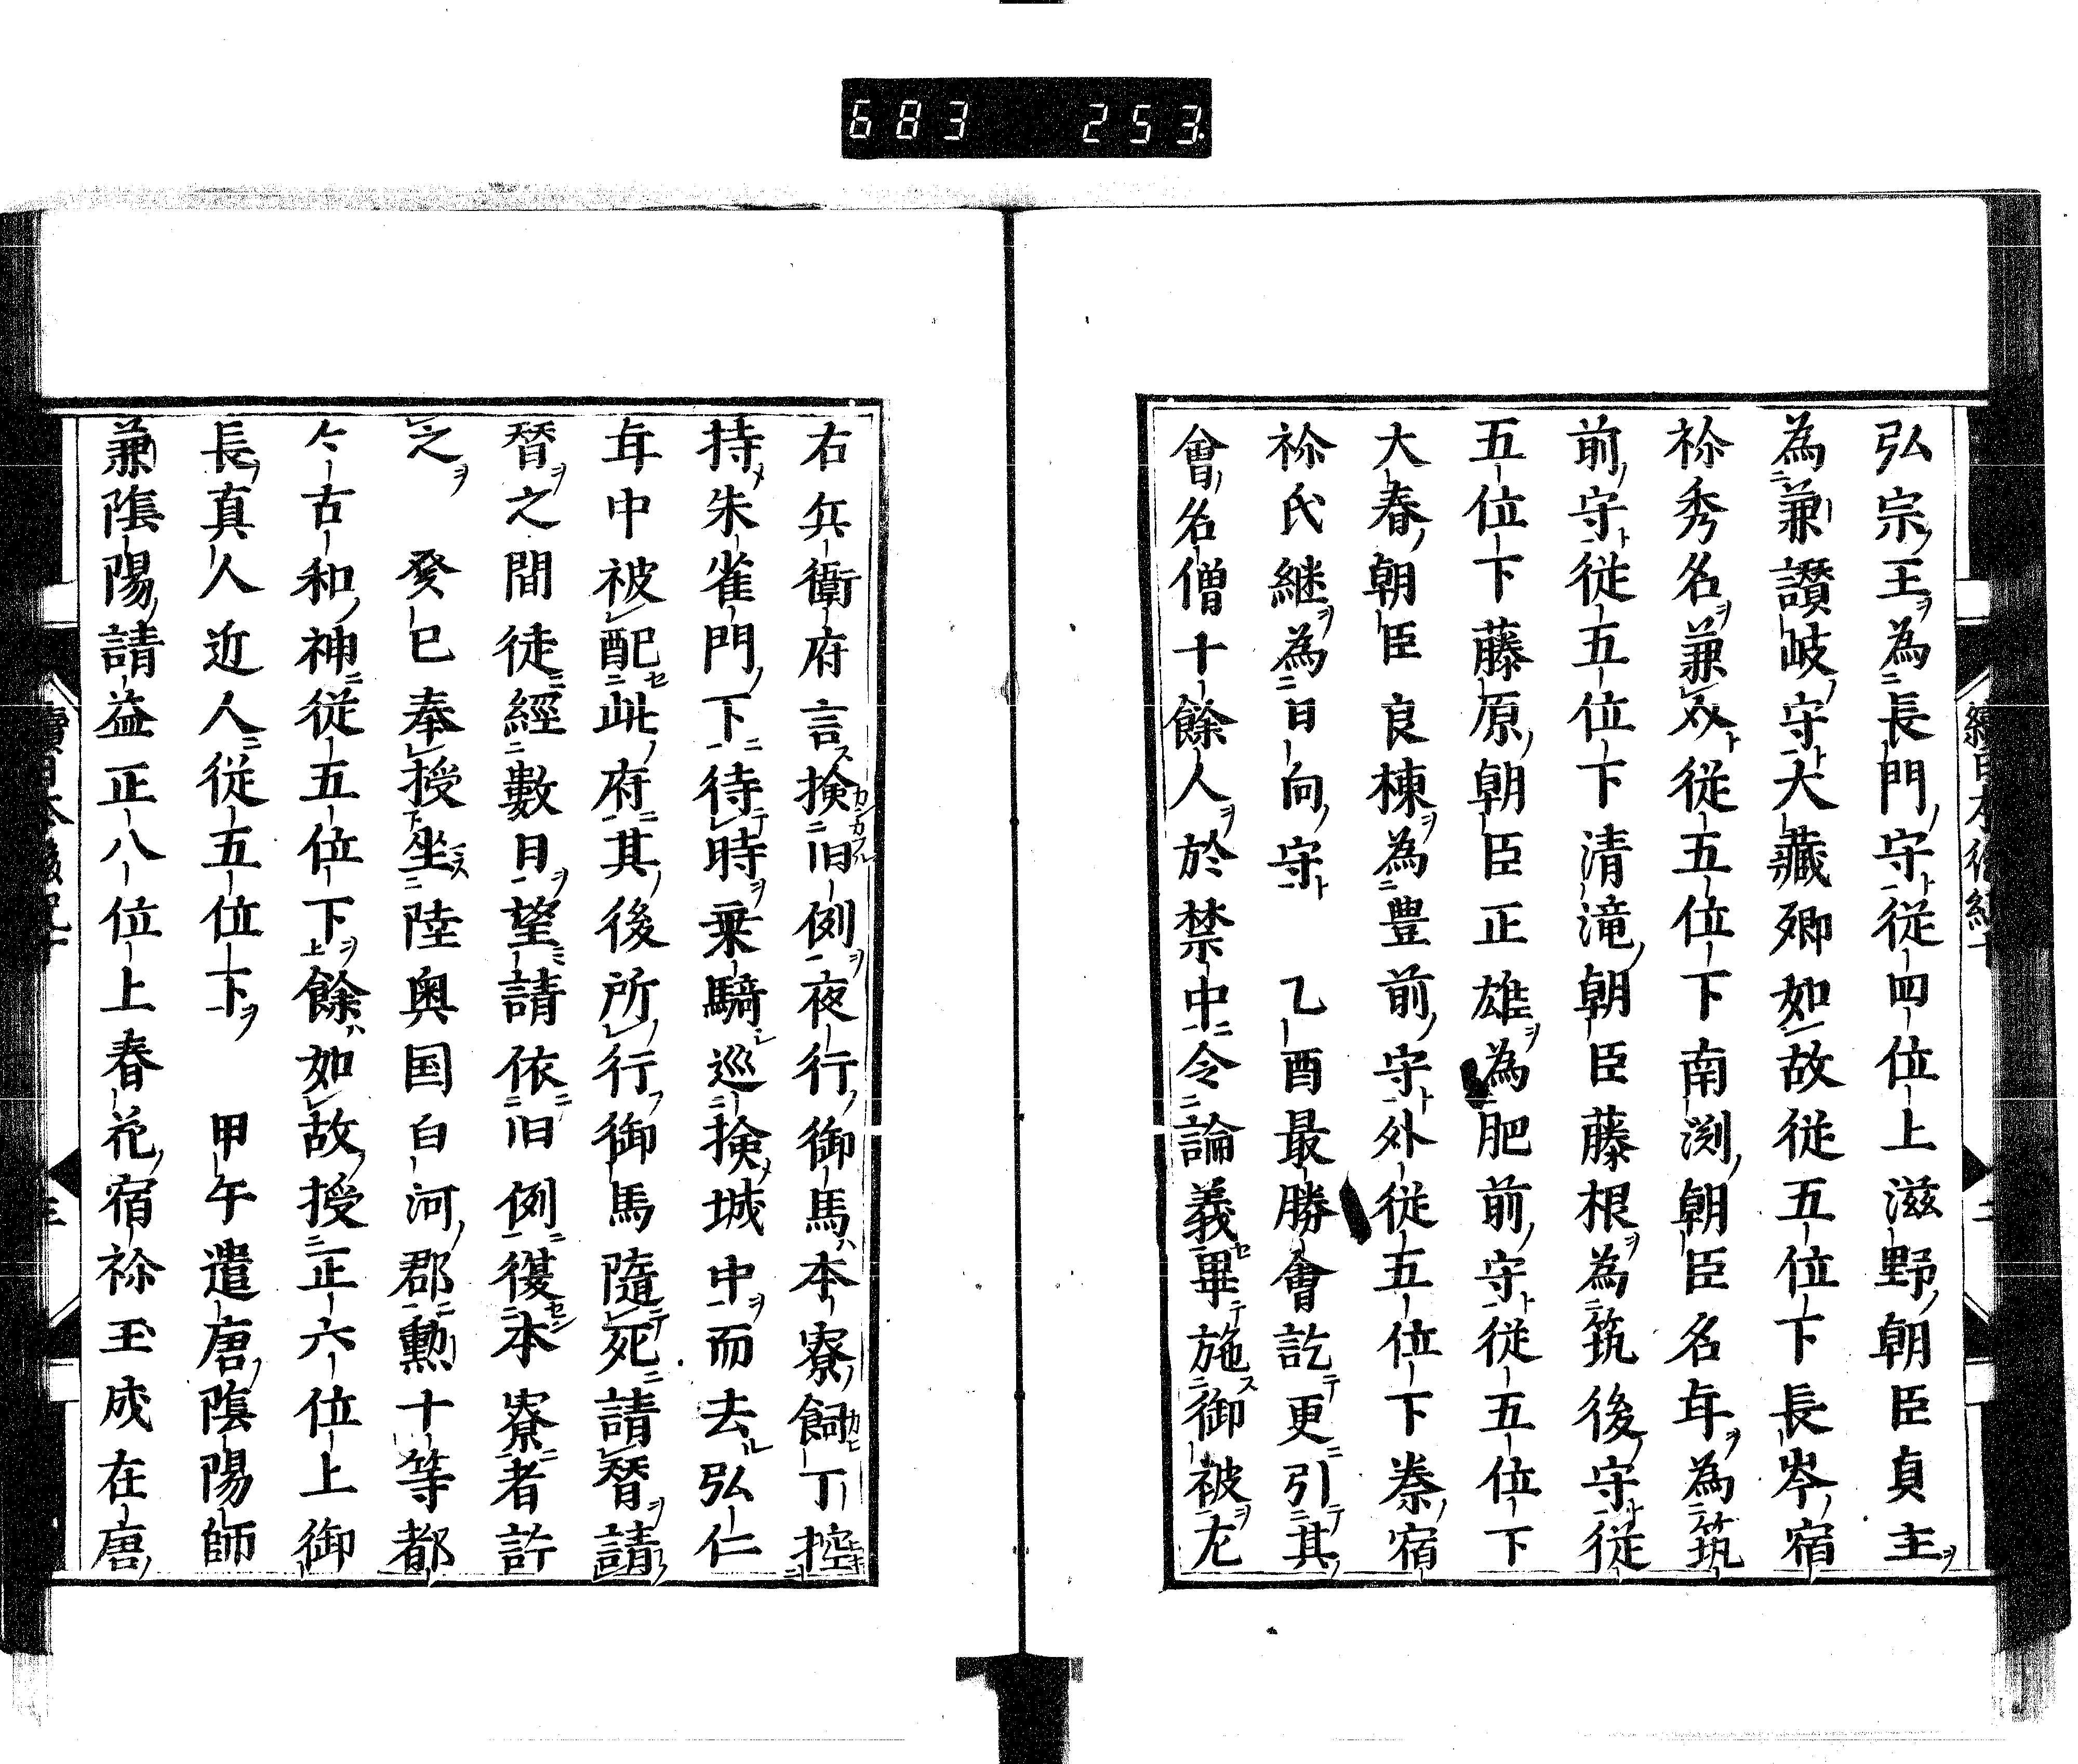 683 253
弘宗王為長門守従四位上滋野朝臣貞主
為兼讃岐守大藏卿如故従五位下長岑宿
祢秀名兼介従五位下南渕朝臣名年為筑
前守従五位下清滝朝臣藤根為筑後守従
五位下藤原朝臣正雄為肥前守従五位下
大春朝臣良棟為豊前守外従五位下秦宿
祢氏継為日向守　乙酉最勝會訖更引其
會名僧十餘人於禁中令論義畢施御被尤
右兵衛府言撿旧例夜行御馬本寮飼丁控
持朱雀門下待時乗騎巡撿城中而去弘仁
年中被配此府其後所行御馬隨死請替請
替之間徒經數日望請依旧例復本寮者許
之　癸巳奉授坐陸奥国白河郡勲十等都
々古和神従五位下餘如故授正六位上御
長真人近人従五位下　甲午遣唐隂陽師
兼隂陽請益正八位上春花宿祢玉成在唐